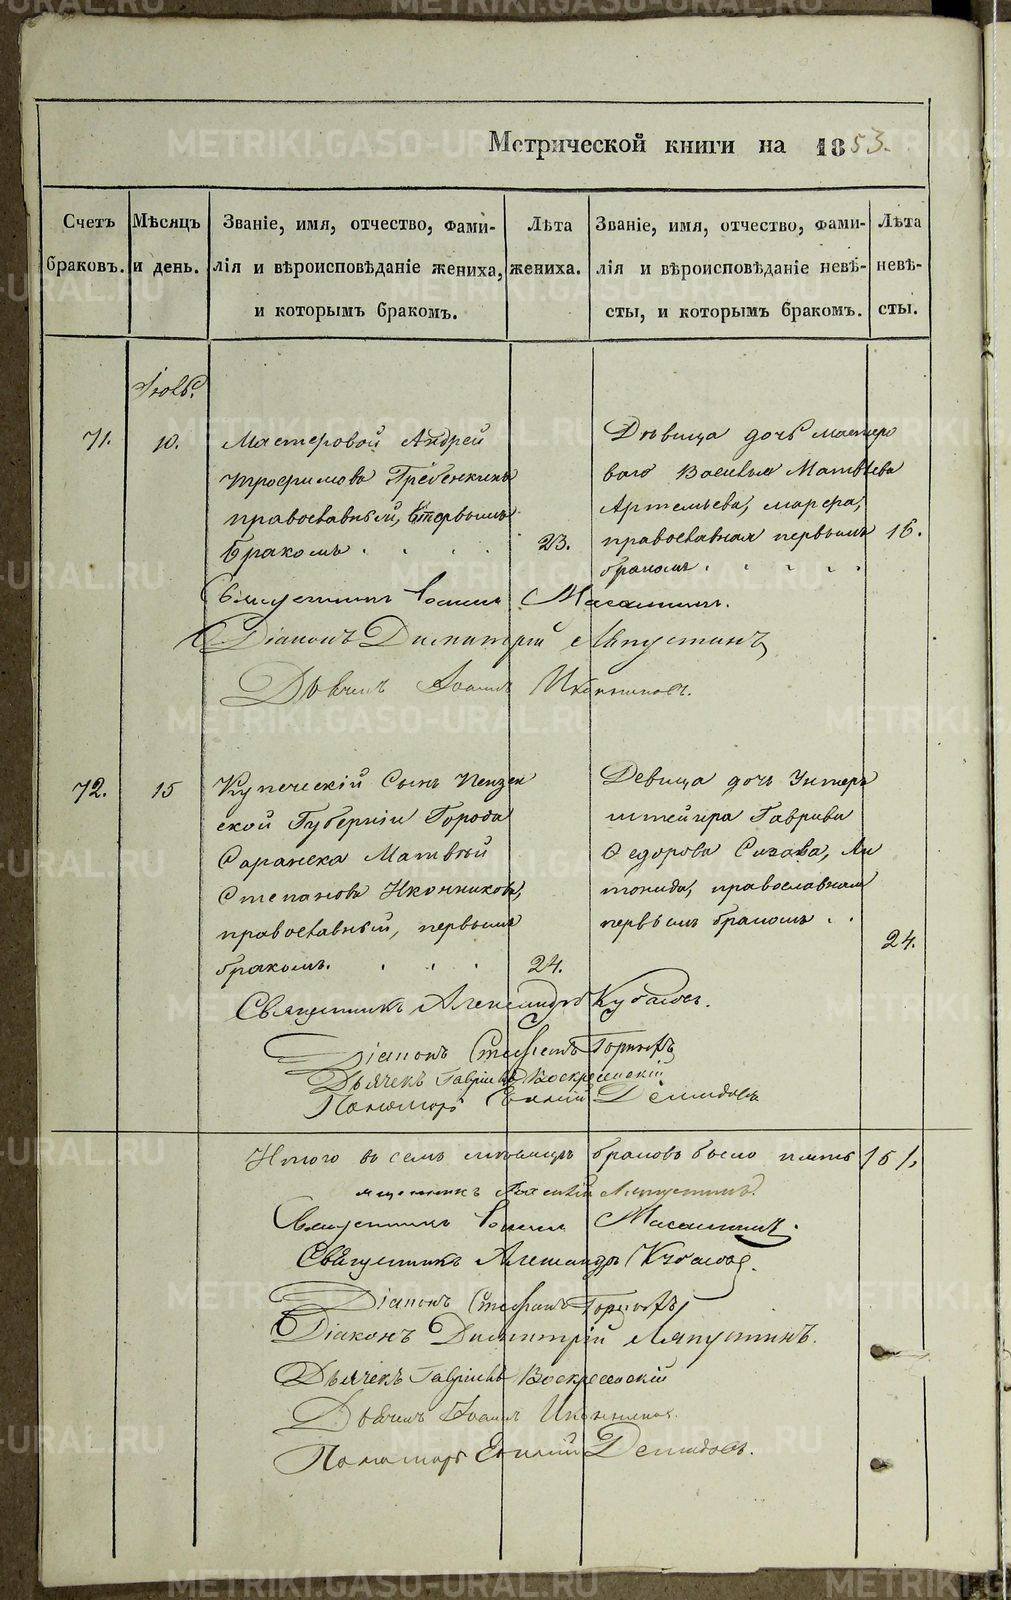 Метрической книги на 1853.
Счетъ браковъ.
Мѣсяцъ и день.
Званіе, имя, отчество, фами-
лія и вѣроисповѣданіе жениха,
и которымъ бракомъ.
Лѣта жениха.
Званіе, имя, отчество, фами-
лія и вѣроисповѣданіе невѣ-
сты, и которымъ бракомъ.
Лѣта невѣ-
сты.
Іюль.
71.
10.
Мастеровой Андрей
Трофимовъ Гребенкинъ
православный, первымъ
бракомъ
23.
Дѣвица дочь мастеро
ваго Василья Матвѣева
Артемьева, Марфа,
православная первымъ
бракомъ
16.
Священникъ Іоаннъ
Діаконъ Димитрій Ляпустинъ
Дьячекъ Іоаннъ Иконниковъ.
72.
15
Купеческій Сынъ Пензен
ской Губерніи Города
Саранска Матвѣй
Степановъ Иконниковъ,
православный, первымъ
бракомъ.
24.
Девица дочь Унтеръ
штейгра Гаврила
Федорова, Ан
тонида, православная
первымъ бракомъ
24.
Священникъ Александръ
Діаконъ Стефанъ
Дьячекъ Гавріилъ Воскресенскій
Пономарь Демидовъ
Итого въ семъ мѣсяцѣ браковъ было пять
Священникъ Іоаннъ
Священникъ Александръ
Діаконъ Стефанъ
Діаконъ Димитрій Ляпустинъ.
Дьячекъ Гавріилъ Воскресенскій
Дьячекъ Іоаннъ Иконниковъ.
Пономарь Демидовъ.
METRIKI.GASO-URAL.RU